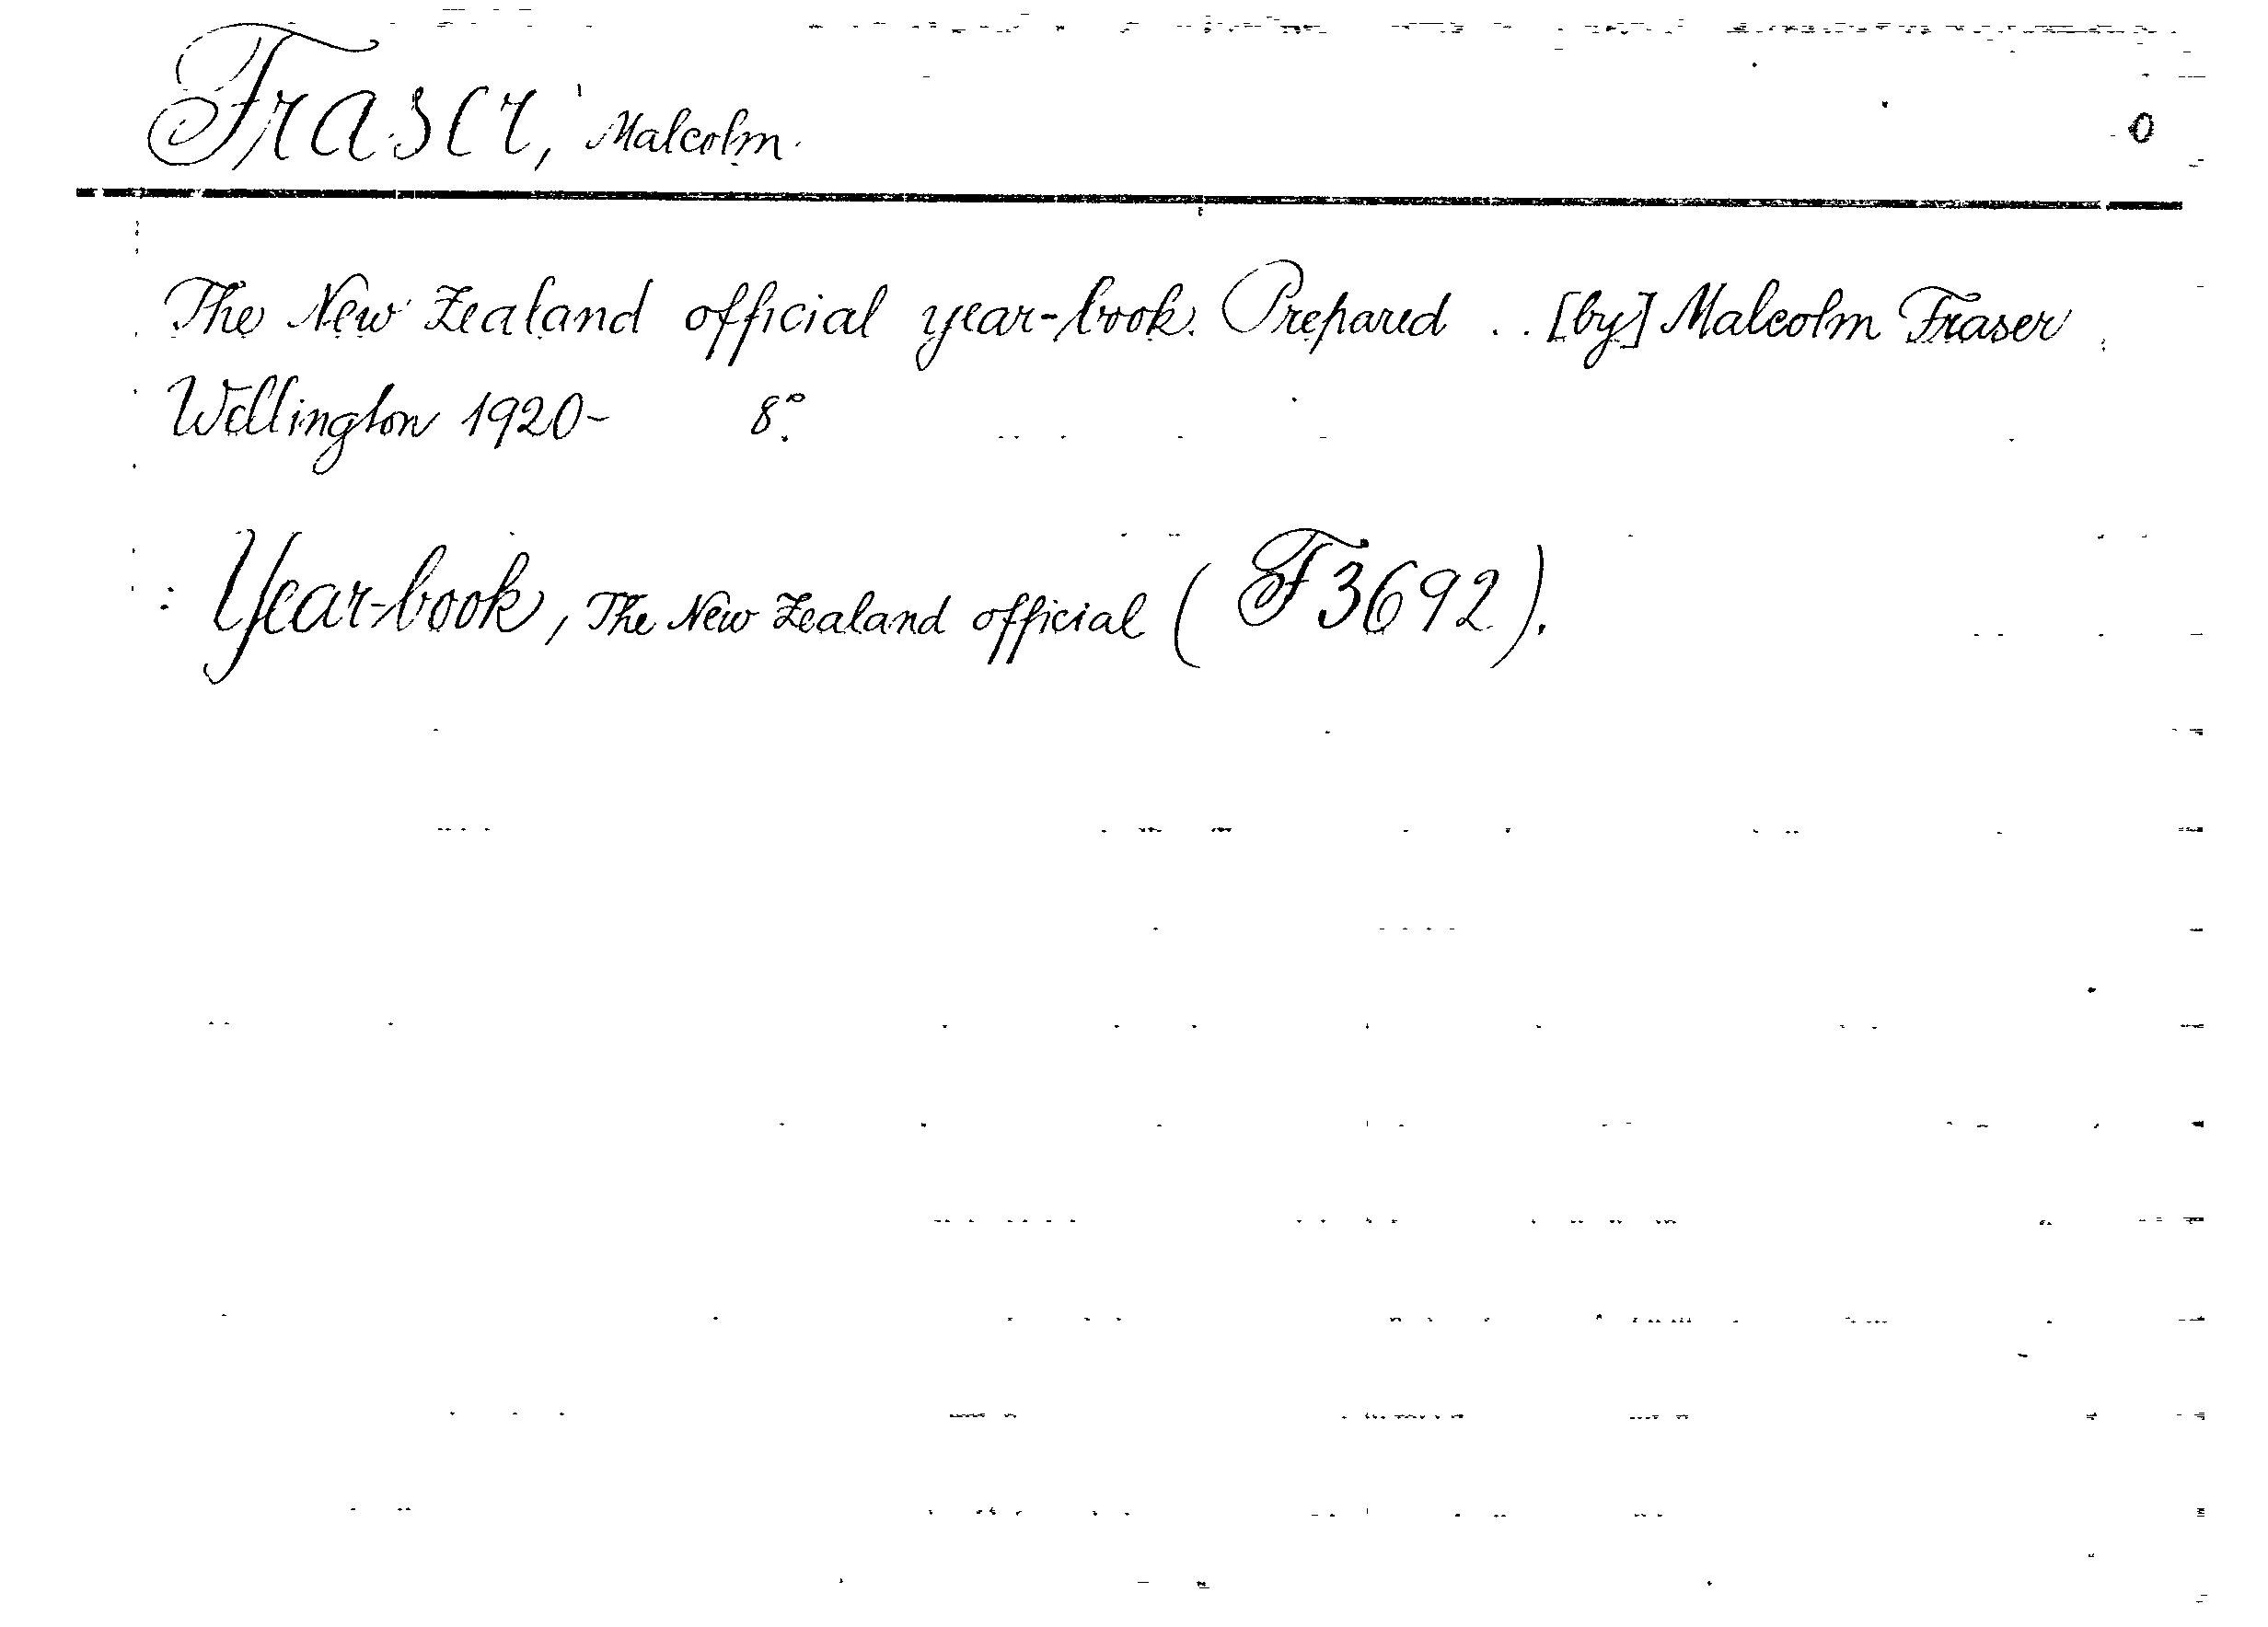 Fraser, Malcolm. 0
The New Zealand official year-book. Prepared .. [by] Malcolm Fraser
Wellington 1920- 8°.
: Year-book, The New Zealand official (F3692).